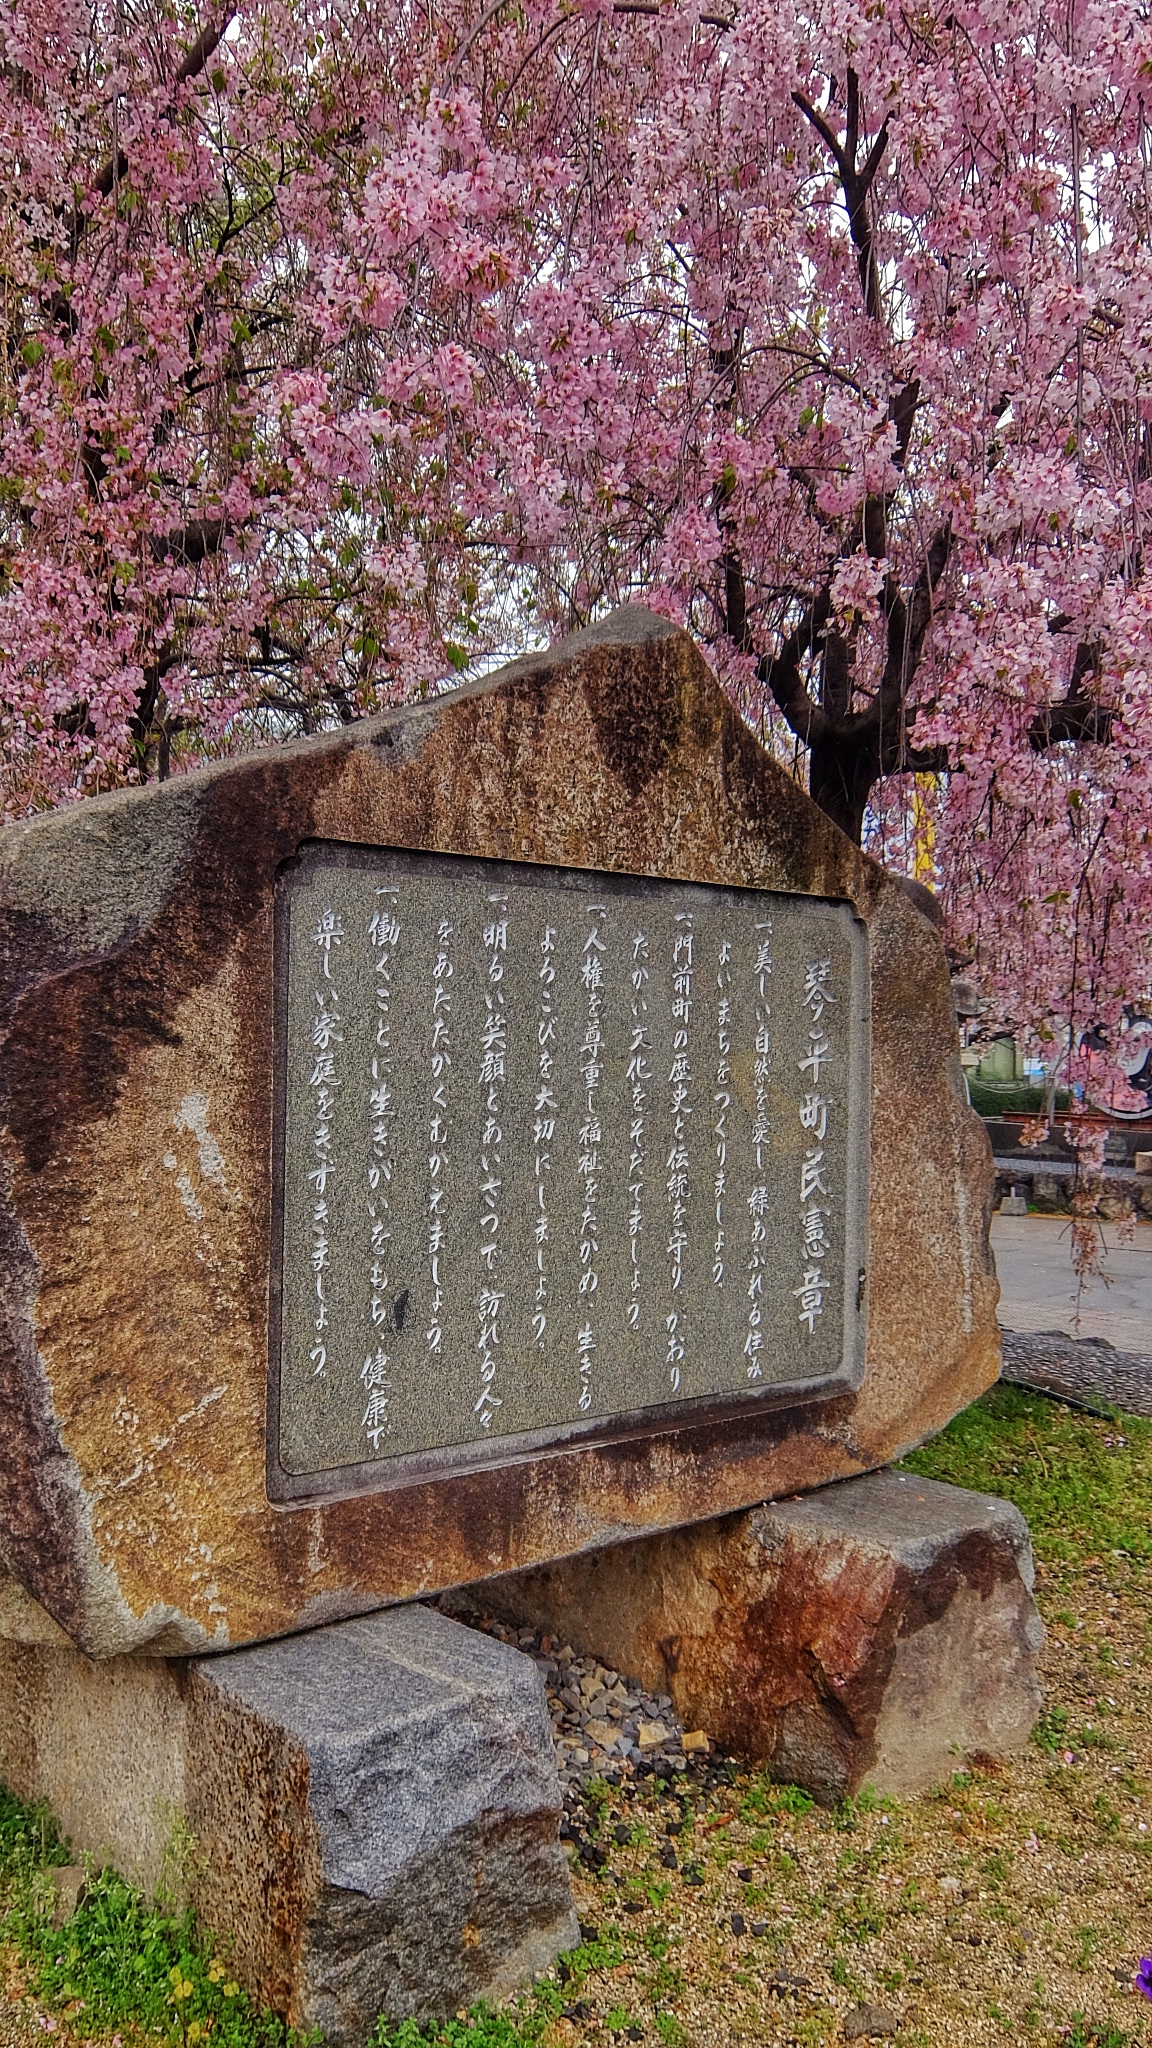 琴平町民憲章
一、美しい自然を愛し 緑あふれる住み
よいまちをつくりましょう。
一、門前町の歴史と伝統を守り かおり
たかい文化をそだてましょう。
一、人権を尊重し福祉をたかめ、生きる
よろこびを大切にしましょう。
一、明るい笑顔とあいさつで、訪れる人々
をあたたかくむかえましょう。
一、働くことに生きがいをもち、健康で
楽しい家庭をきずきましょう。